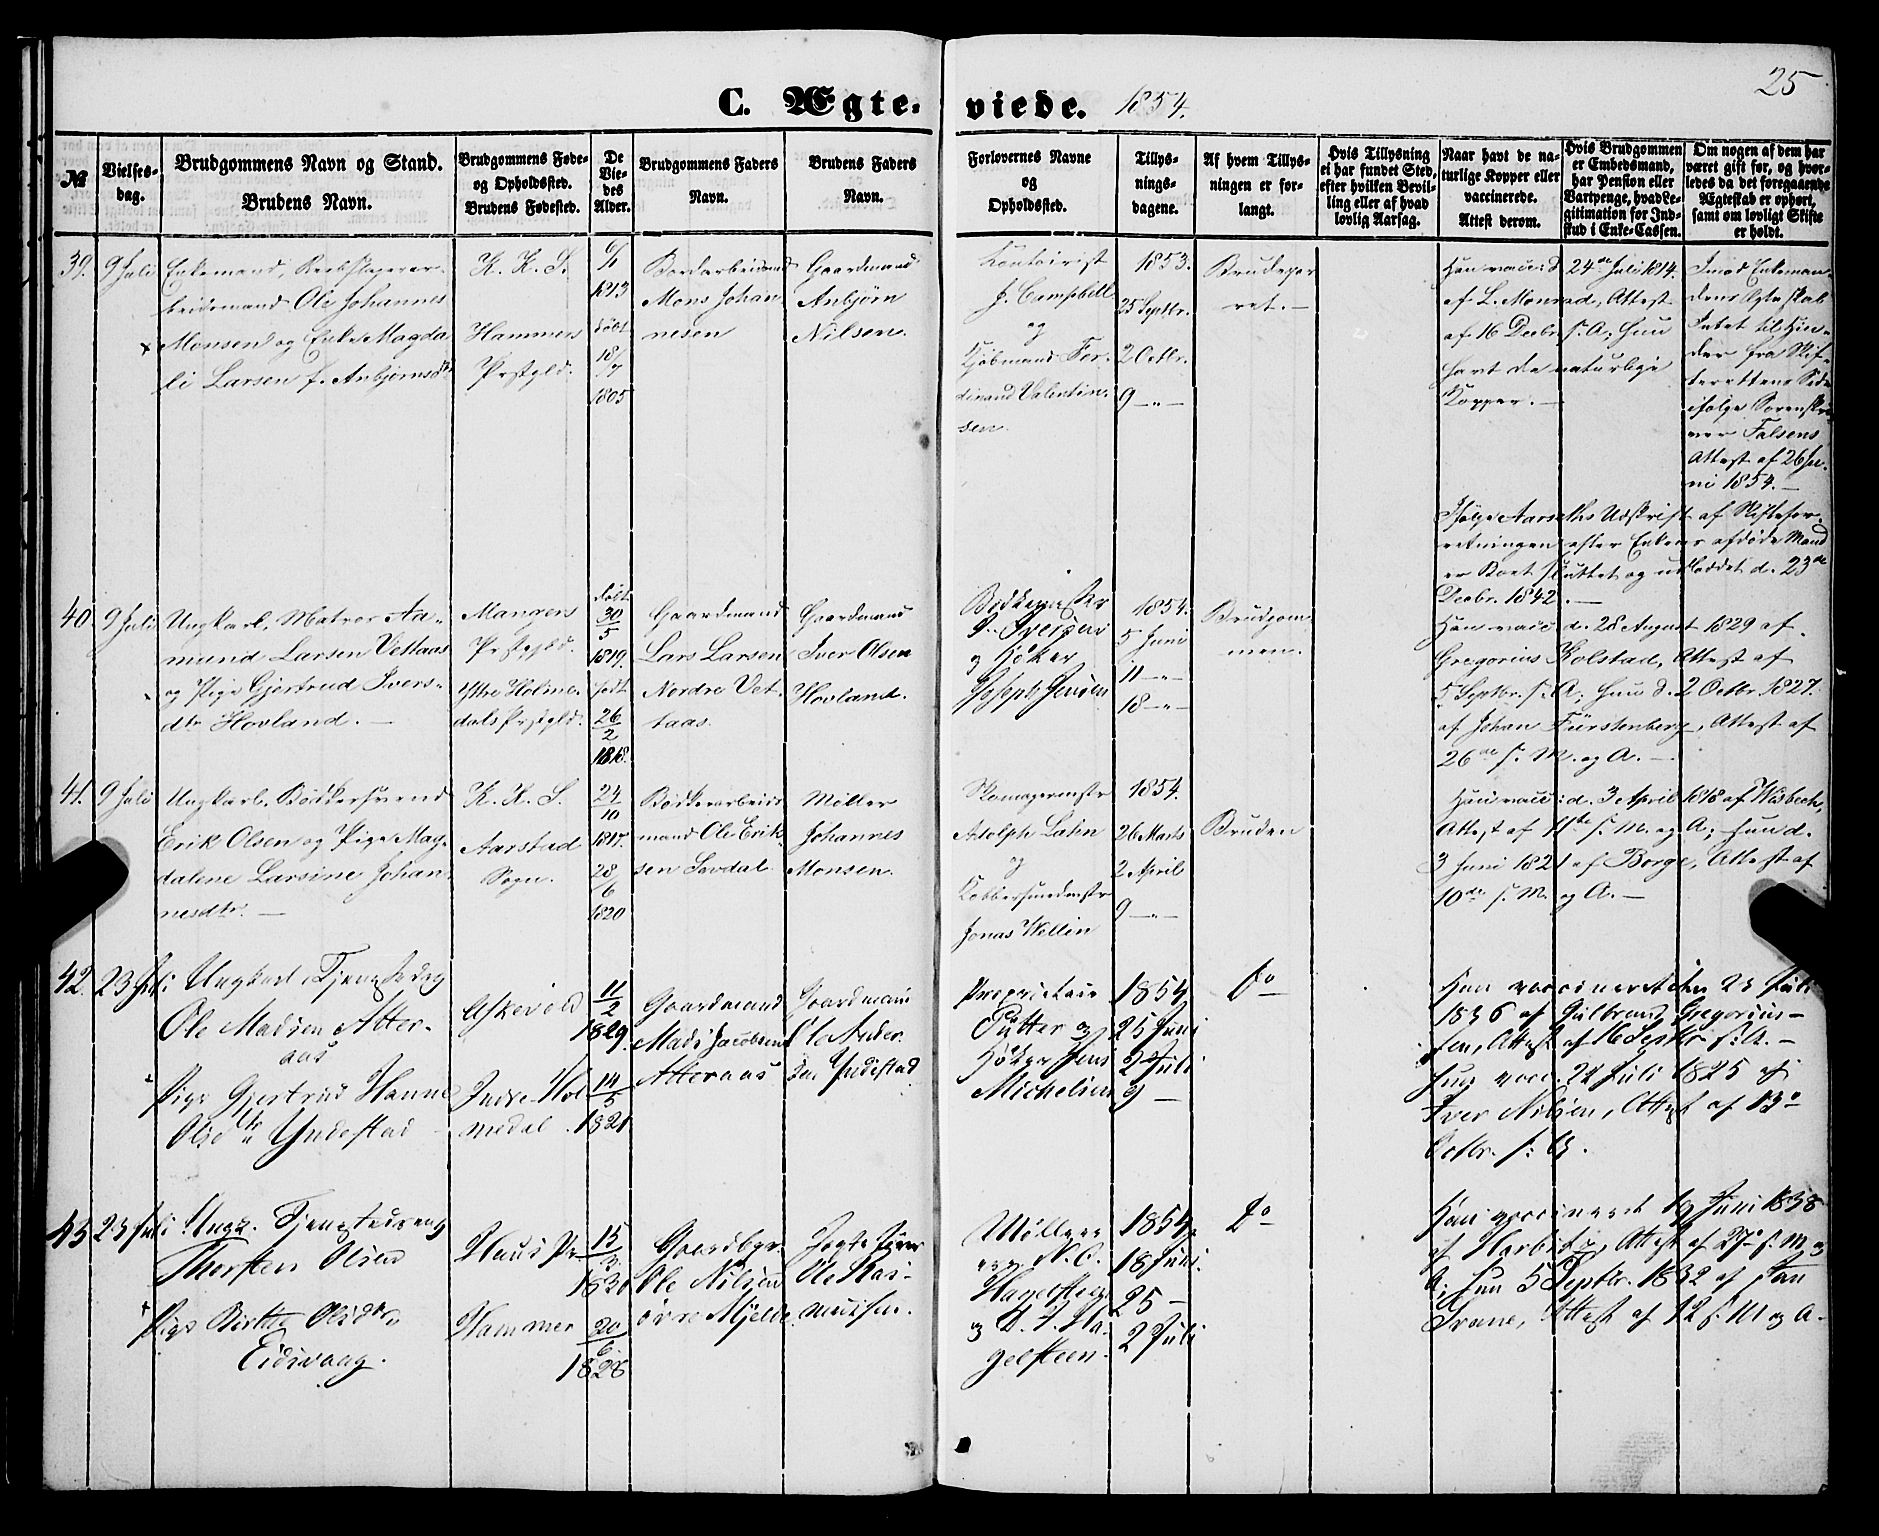 25
C. Ægte- viede. 1854.
№
Vielses-
dag.
Brudgommens Navn og Stand.
Brudens Navn.
Brudgommens Føde-
og Opholdssted.
Brudens Fødested.
De
Vie-
des
Alder.
Brudgommens Faders
Navn.
Brudens Faders
Navn.
Forlovernes Navne
og
Opholdssted.
Tillys-
nings-
dagene.
Af hvem Tillys-
ningen er for-
langt.
Hvis Tillysning
ei har fundet Sted,
efter hvilken Bevil-
ling eller af hvad
lovlig Aarsag.
Naar havt de na-
turlige Kopper eller
vaccinerede.
Attest derom.
Hvis Brudgommen
er Embedsmand,
har Pension eller
Vartpenge, hvad Le-
gitimation for Ind-
skud i Enke-Cassen.
Om nogen af dem har
været gift før, og hvor-
ledes da det foregaaende
Ægteskab er ophørt,
samt om lovligt Skifte
er holdt.
39.
9 Juli
Enkemand, Reebslagerar-
beidsmand Ole Johannes
Monsen og Enke Magda
li Larsen f. Anbjørnsdtr
K. K. S.
Hammers
Prstgld.
6/1
1813
født
18/7
1805
Bordarbeidsmand
Mons Johan
nesen
Gaardmand
Anbjørn
Nilsen.
Kontoirist
J. Campbell
og
Kjøbmand Fer-
dinand Valentin-
sen.
1853.
25 Septbr.
2 Octbr.
9 —„—
Brudepar
ret. —
Han vacc: d. 24de Juli 1814.
af L. Monrad, Attest
af 16 Decbr. s. A; hun
havt de naturlige
Kopper. —
Imod Enkeman-
dens Ægteskab
Intet til Hin-
der fra Skif-
terettens Side
ifølge Sorenskri
ver Falsens
Attest af 26 Ju-
ni 1854. —
Ifølge Aarseths Udskrift af Skiftefor-
retningen efter Enkens afdøde Mand
er Boet sluttet og udloddet d. 23de
Decbr. 1842. —
40.
9 Juli
Ungkarl, Matros Aa-
mund Larsen Vettaas
og Pige Gjertrud Ivers-
dtr Hovland. —
Mangers
Prstgjld.
Yttre Holme-
dals Prstgld.
født
30/5
1819.
født
26/2
1818.
Gaardmand
Lars Larsen
Nordre Vet-
taas.
Gaardmand
Iver Olsen
Hovland.
Bødkermester
Iversen
og Høker
Joseph Jensen
1854.
5 Juni
11 —„—
18 —„—
Brudgom
men.
Han vacc: d. 28 August 1829 af
Gregorius Kolstad, Attest af
5 Septbr. s. A; hun d. 2 Octbr. 1827.
af Johan Fürstenberg, Attest af
26de s. M. og A. —
41.
9 Juli
Ungkarl, Bødkersvend
Erik Olsen og Pige Mag-
dalene Larsine Johan-
nesdtr. —
K. K. S.
Aarstad
Sogn.
24/10
1817.
28/6
1820
Bødkerarbeids
mand Ole Erik-
sen Sævdal.
Møller
Johannes
Monsen.
Skomagermstr
Adolph Lahn
og
Kobbersmedmstr
Jonas Wellin
1854.
26 Marts
2 April
9 —„—
Bruden
Han vacc: d. 3 April 1818 af Wisbech,
Attest af 11te s. M. og A; hun d.
3 Juni 1821 af Borge, Attest af
10de s. M. og A. —
42.
23 Juli
Ungkarl, Tjenestedreg
Ole Madsen Atter-
aas
Pige Gjertrud Hanne
Olsdtr Yndestad
Askevold
Indre Hol
medal.
11/2
1829.
14/5
1821
Gaardmand
Mads Jacobsen
Atteraas
Gaardmand
Ole Ander
sen Yndestad
Proprietair
Pütter og
Høker Jens
Michelsen
1854
25 Juni
2 Juli
9 —
Do
Han vaccineret den 23 Juli
1836 af Gulbrand Gregorius-
sen, Attest af 16 Septbr s. A. —
Hun vacc. 24 Juli 1825 af
Iver Nilsen, Attest af 13de
Octbr. s. A.
43.
23 Juli
Ungk. Tjenestedreng
Thorsten Olsen
Pige Birthe Olsdtr
Eidsvaag.
Haus Pr
Hammer
15/3
1830
20/6
1828
Gaardbgr.
Ole Nilsen
øvre Mjelde
Jagteskipper
Ole Ras-
mussen.
Møller
N. C.
Hagelsteen
og D. J. Ha-
gelsteen.
1854,
18 Juni.
25 —
2 Juli
Do
Han vaccineret 19 Juni 1838
af Harbitz, Attest af 27de s. M og
A; hun 5 Septbr. 1832 af Jan
Svane, Attest af 12 s. M og A.